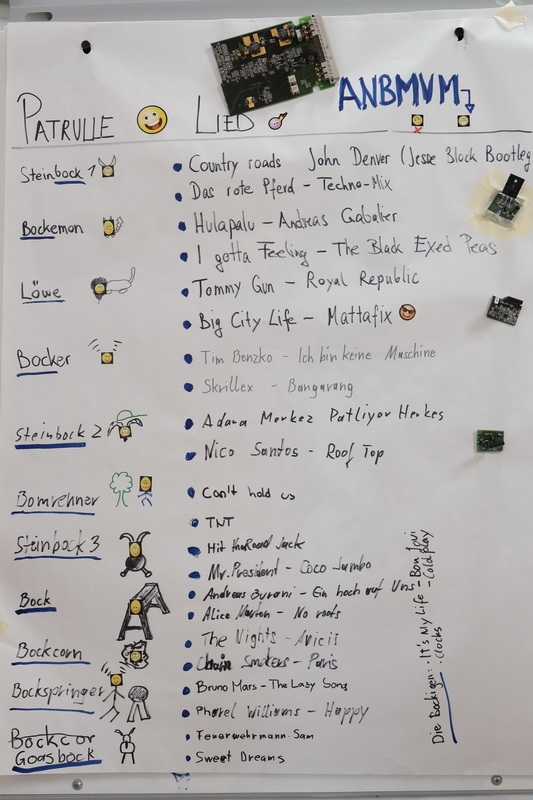 ANBMVM
PATRULLE LIED
Steinbock 1
Country roads John Denver (Jesse Block Bootleg
Das rote Pferd - Techno-Mix
Bockemon
Hulapalu - Andreas Gabalier
I gotta Feeling - The Black Eyed Peas
Löwe
Tommy Gun - Royal Republic
Big City Life - Mattafix
Bocker
Tim Benzko - Ich bin keine Maschine
Skrillex - Bangarang
Steinbock 2
Adana Merkez Patliyor Herkes
Nico Santos - Roof Top
Bomrehner
Can't hold us
TNT
Steinbock 3
Hit the Road Jack
Mr. President - Coco Jambo
Bock
Andreas Burani - Ein hoch auf Uns
Alice Merton - No roots
Bockcorn
The Nights - Avicii
Chain Smokers - Paris
Bockspringer
Bruno Mars - The Lazy Song
Pharel Williams - Happy
Bockcor
Feuerwehrmann Sam
Goasbock
Sweet Dreams
Die Bockigen: - It's My Life - Bon Jovi
- Clocks - Coldplay